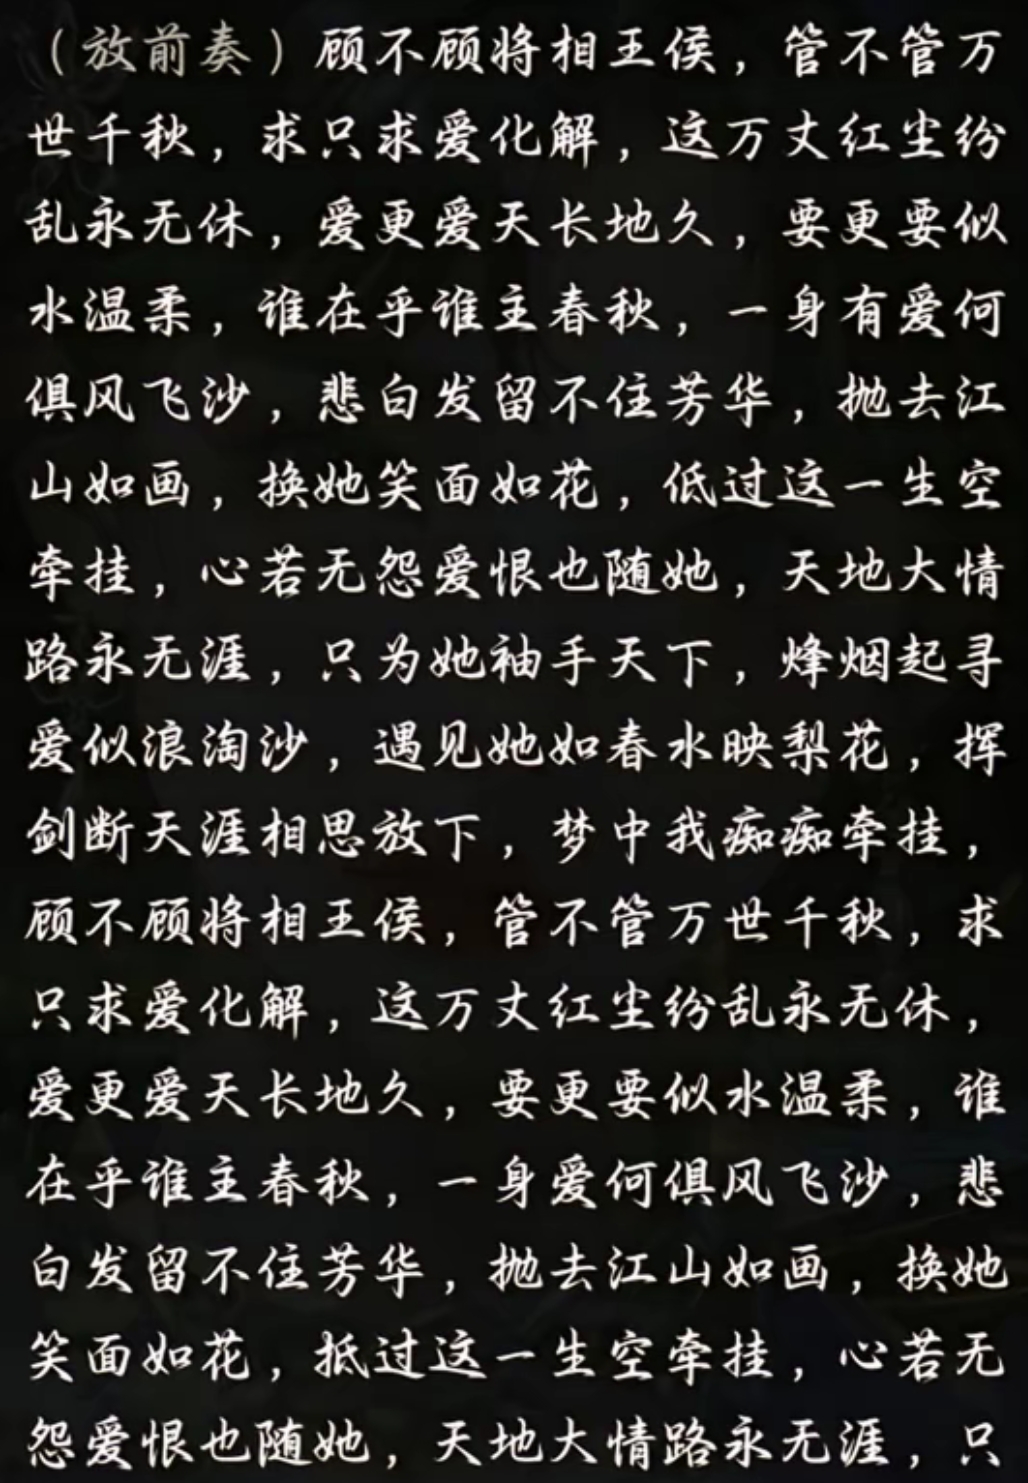 （放前奏）顾不顾将相王侯，管不管万
世千秋，求只求爱化解，这万丈红尘纷
乱永无休，爱更爱天长地久，要更要似
水温柔，谁在乎谁主春秋，一身有爱何
俱风飞沙，悲白发留不住芳华，抛去江
山如画，换她笑面如花，低过这一生空
牵挂，心若无怨爱恨也随她，天地大情
路永无涯，只为她袖手天下，烽烟起寻
爱似浪淘沙，遇见她如春水映梨花，挥
剑断天涯相思放下，梦中我痴痴牵挂，
顾不顾将相王侯，管不管万世千秋，求
只求爱化解，这万丈红尘纷乱永无休，
爱更爱天长地久，要更要似水温柔，谁
在乎谁主春秋，一身爱何俱风飞沙，悲
白发留不住芳华，抛去江山如画，换她
笑面如花，抵过这一生空牵挂，心若无
怨爱恨也随她，天地大情路永无涯，只